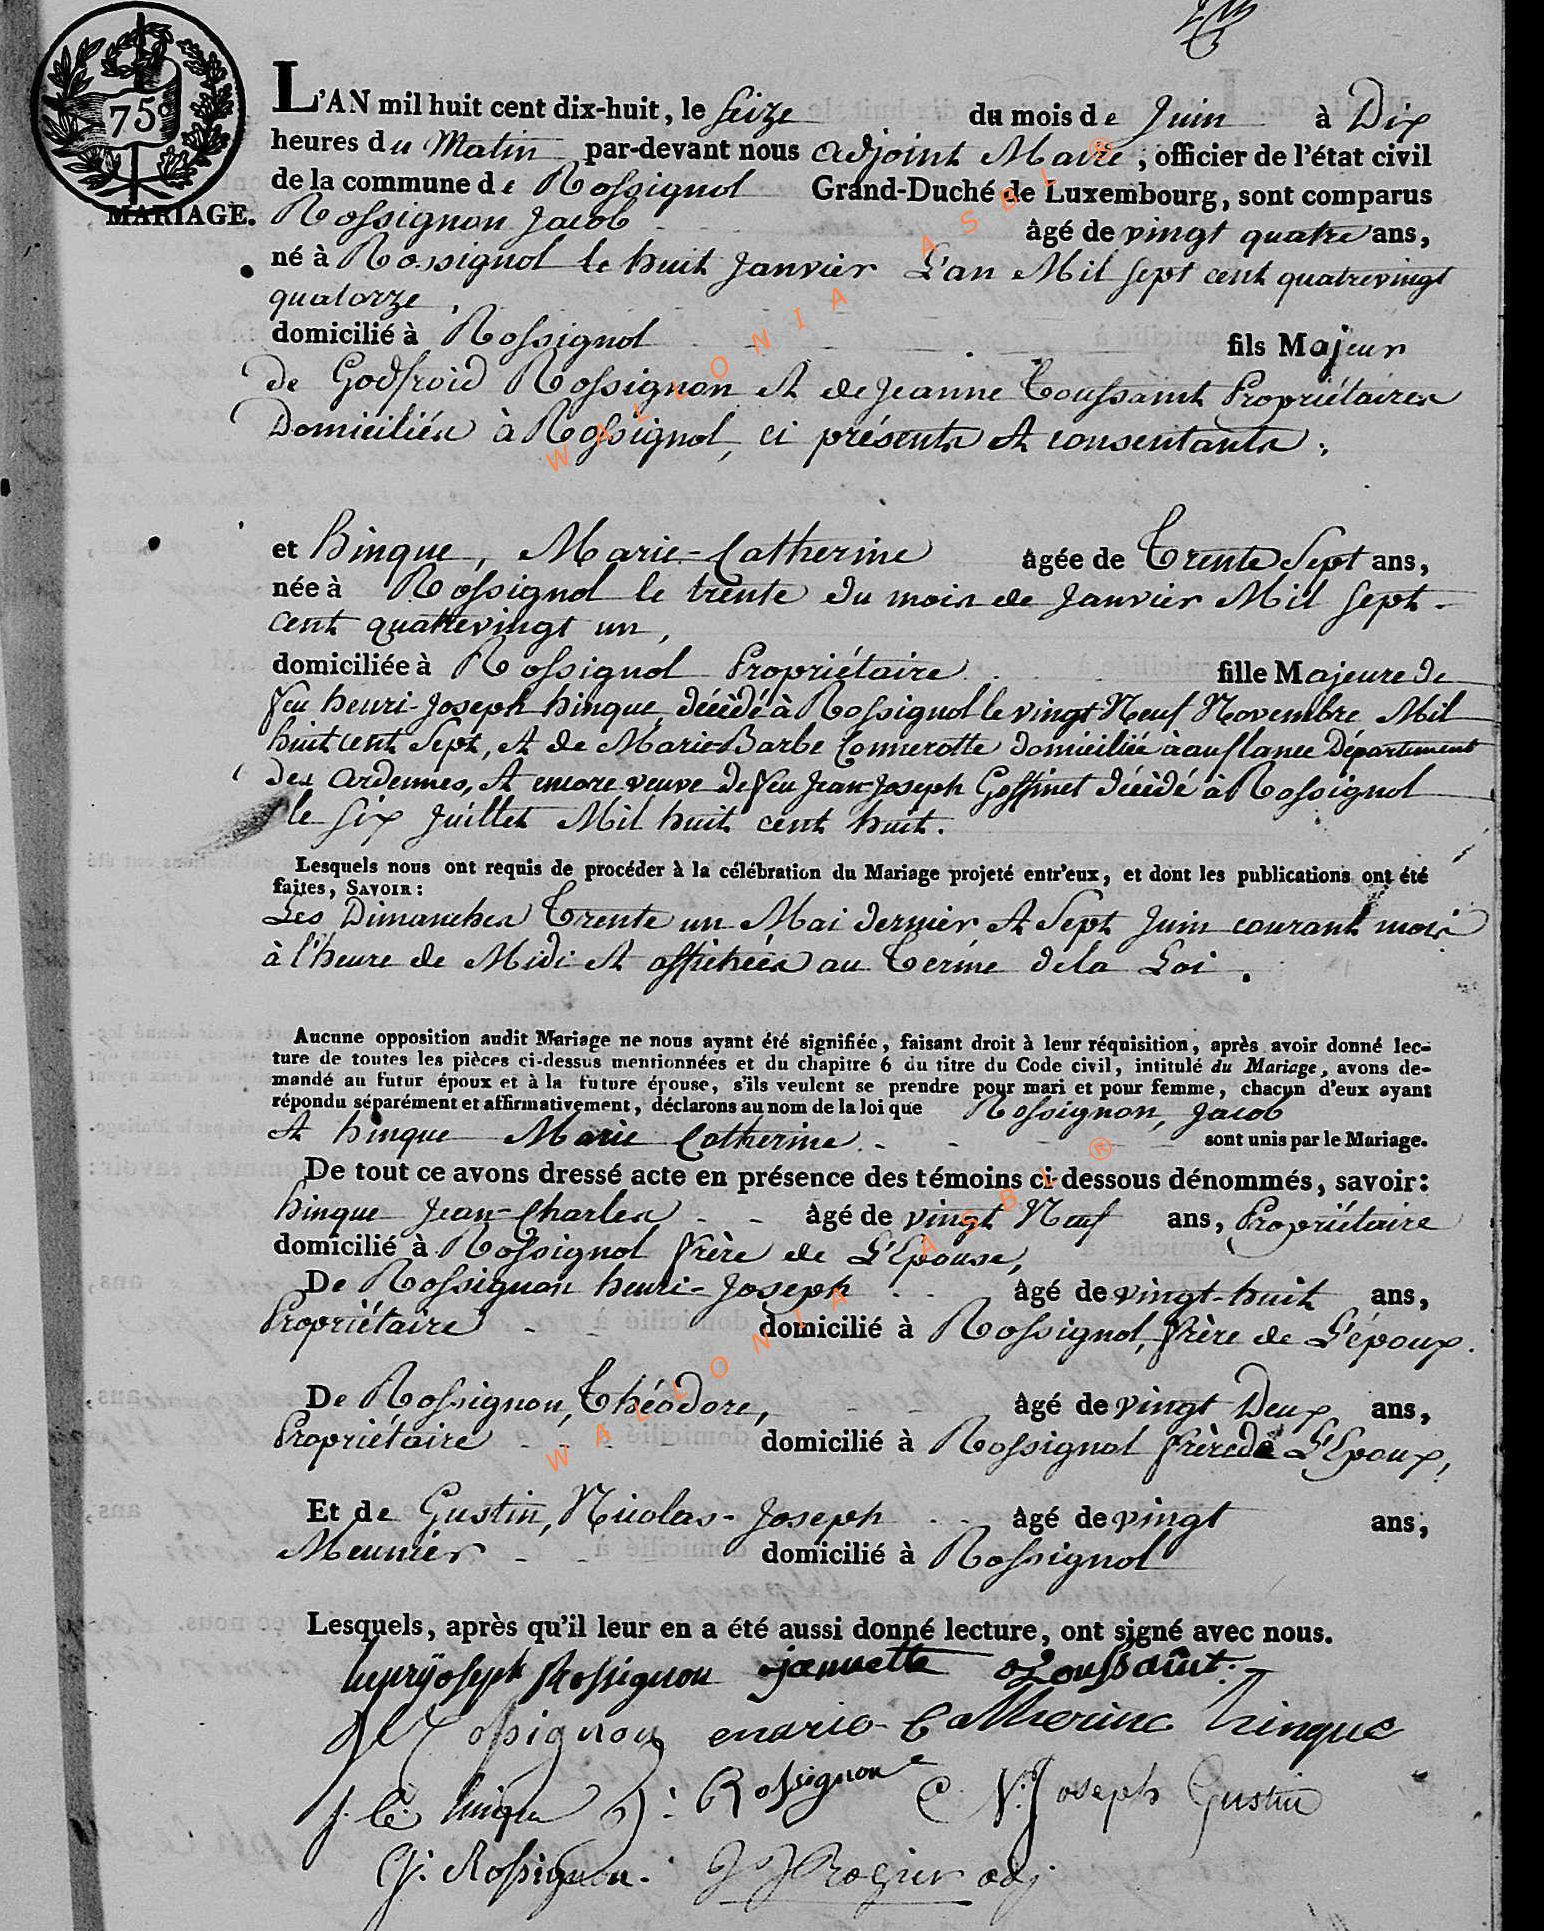 75c
L'AN mil huit cent dix-huit, le seize du mois de Juin à Dix
heures du Matin par-devant nous adjoint Maire, officier de l'état civil
de la commune de Rossignol Grand-Duché de Luxembourg, sont comparus
MARIAGE. Rossignon Jacob âgé de vingt quatre ans,
né à Rossignol le huit Janvier L'an Mil sept cent quatrevingt
quatorze,
domicilié à Rossignol fils Majeur
de Godfroid Rossignon et de Jeanne Toussaint Propriétaires
Domiciliés à Rossignol, ci présents et consentants;
et hinque, Marie-Catherine âgée de Trente Sept ans,
née à Rossignol le trente du mois de Janvier Mil sept
cent quatrevingt un,
domiciliée à Rossignol Propriétaire fille Majeure de
feu henri-Joseph hinque, décédé à Rossignol le vingt Neuf Novembre Mil
huit cent Sept, et de Marie-Barbe Connerotte domiciliée à auflance Département
des ardennes, et encore veuve de feu Jean-Joseph Goffinet décédé à Rossignol
le six Juillet Mil huit cent huit.
Lesquels nous ont requis de procéder à la célébration du Mariage projeté entr'eux, et dont les publications ont été
faites, SAVOIR:
Les Dimanches Trente un Mai dernier et Sept Juin courant mois
à l'heure de Midi et affichées au Terme de la Loi.
Aucune opposition audit Mariage ne nous ayant été signifiée, faisant droit à leur réquisition, après avoir donné lec-
ture de toutes les pièces ci-dessus mentionnées et du chapitre 6 du titre du Code civil, intitulé du Mariage, avons de-
mandé au futur époux et à la future épouse, s'ils veulent se prendre pour mari et pour femme, chacun d'eux ayant
répondu séparément et affirmativement, déclarons au nom de la loi que Rossignon, Jacob
et hinque Marie Catherine sont unis par le Mariage.
De tout ce avons dressé acte en présence des témoins ci-dessous dénommés, savoir:
hinque Jean-Charles âgé de vingt Neuf ans, Propriétaire
domicilié à Rossignol frère de L'Epouse,
De Rossignon henri-Joseph âgé de vingt-huit ans,
Propriétaire domicilié à Rossignol, frère de L'époux.
De Rossignon, Théodore, âgé de vingt Deux ans,
Propriétaire domicilié à Rossignol frère de L'Epoux,
Et de Gustin, Nicolas-Joseph âgé de vingt ans,
Meunier domicilié à Rossignol
Lesquels, après qu'il leur en a été aussi donné lecture, ont signé avec nous.
henryjoseph Rossignon jannette Toussaint.
Rossignon marie-Catherine hinque
j. C. hinque Rossignon N. Joseph Gustin
G. Rossignon. Rogier adj
WALLONIA ASBL ®
WALLONIA ASBL ®